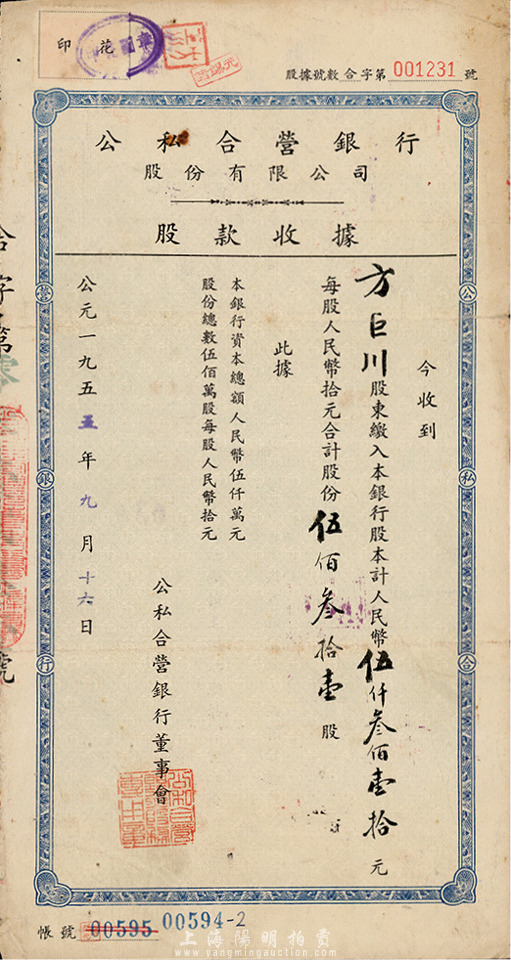 印花
股據號數 合 字第 001231 號
公私合營銀行
股份有限公司
股款收據
今收到
方巨川股東繳入本銀行股本計人民幣伍仟叁佰壹拾元
每股人民幣拾元合計股份伍佰叁拾壹股
此據
本銀行資本總額人民幣伍仟萬元
股份總數伍佰萬股每股人民幣拾元
公私合營銀行董事會
公元一九五五年九月十六日
公私合營銀行
合字第
號
帳號 00595 00594-2
上海陽明拍賣
www.yangmingauction.com